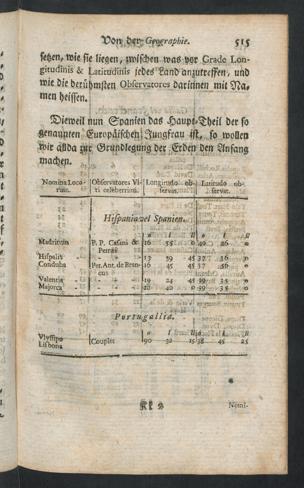 Von der Geographie. 515
setzen, wie sie liegen, zwischen was vor Grade Lon-
gitudinis & Latitudinis jedes Land anzutreffen, und
wie die berühmsten Observatores darinnen mit Na-
men heissen.
Dieweil nun Spanien das Haupt-Theil der so
genannten Europäischen Jungfrau ist, so wollen
wir allda zur Grundlegung der Erden den Anfang
machen.
Nomina Loco- Observatores Vi- Longitudo ob- Latitudo ob-
rum. ri celeberrimi. servat. servat.
Hispania vel Spanien.
Madritum P. P. Casini & 16 55 0 40 26 0
Petrée
Hispalis 13 59 45 37 36 0
Corduba Per. Ant. de Bran- 16 45 45 37
cus
Valentia 19 24 45 39 35
Majorca 20 40 0 39 35
Portugallia.
Vlyssipo Couplet 90 32 15 38 45 25
Lisbona
Kk 2 Nomi-